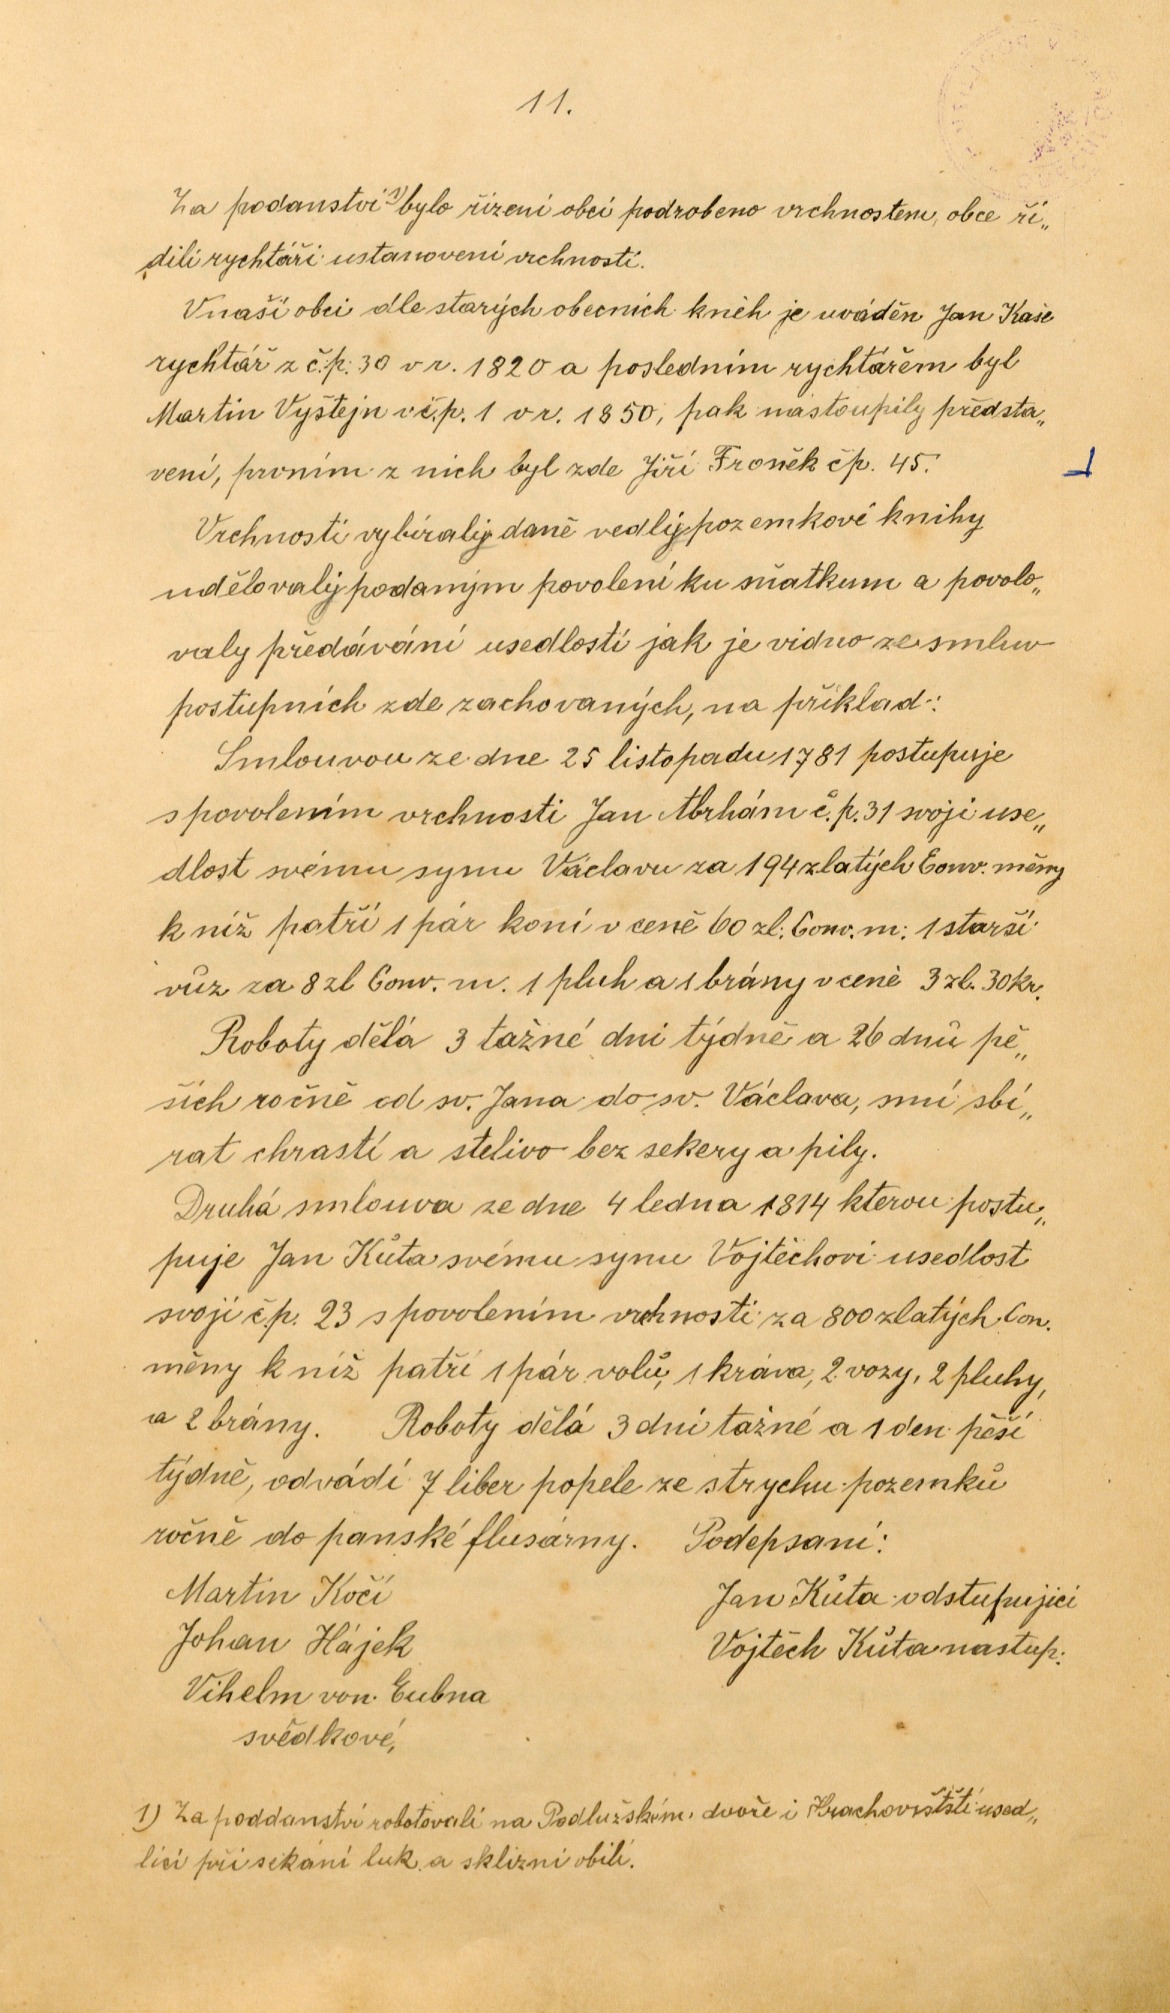 11.
Za podanství 1) bylo řízení obcí podrobeno vrchnostem, obce ří„
dili rychtáři ustanovení vrchností.
V naší obci dle starých obecních kněh je uváděn Jan Kaše
rychtář z č.p. 30 v r. 1820 a posledním rychtářem byl
Martin Vyštejn v č.p. 1 v r. 1850, pak nastoupily předsta„
vení, prvním z nich byl zde Jiří Froněk čp. 45.
Vrchnosti vybíraly daně vedly pozemkové knihy
udělovaly podaným povolení ku sňatkum a povolo„
valy předávání usedlostí jak je vidno ze smluv
postupních zde zachovaných, na příklad:
Smlouvou ze dne 25 listopadu 1781 postupuje
s povolením vrchnosti Jan Abrhám č.p. 31 svoji use„
dlost svému synu Václavu za 194 zlatých Conv. měny
k níž patří 1 pár koní v ceně 60 zl. Conv. m. 1 starší
vůz za 8 zl Conv. m. 1 pluh a 1 brány v ceně 3 zl. 30 kr.
Roboty dělá 3 tažné dni týdně a 26 dnů pě„
ších ročně od sv. Jana do sv. Václava, smí sbí„
rat chrastí a stelivo bez sekery a pily.
Druhá smlouva ze dne 4 ledna 1814 kterou postu„
puje Jan Kůta svému synu Vojtěchovi usedlost
svoji čp. 23 s povolením vrchnosti za 800 zlatých Con.
měny k níž patří 1 pár volů, 1 kráva, 2 vozy, 2 pluhy,
a 2 brány. Roboty dělá 3 dni tažné a 1 den pěší
týdně, odvádí 7 liber popele ze strychu pozemků
ročně do panské flusárny. Podepsaní:
Martin Kočí Jan Kůta odstupující
Johan Hájek Vojtěch Kůta nastup.
Vihelm von Eubna
svědkové,
1) Za poddanství robotovali na Podlužském dvoře i Hrachovištští used„
líci při sekání luk a sklizni obilí.